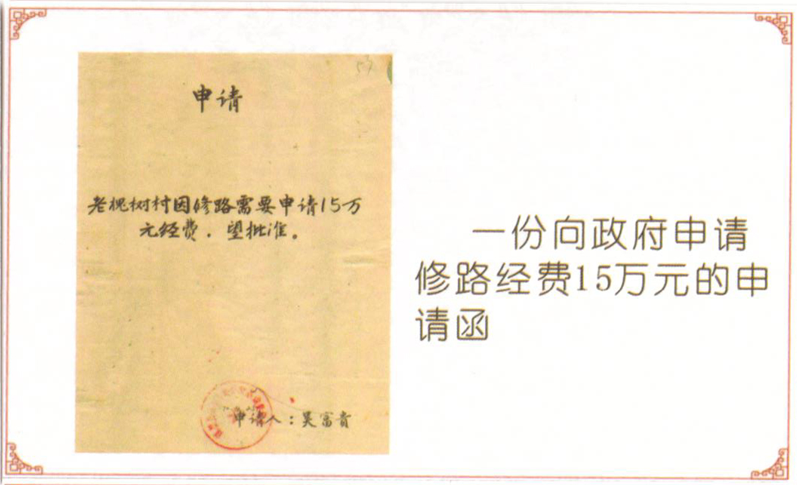 申请
老槐树村因修路需要申请15万
元经费，望批准。
申请人：吴富贵
一份向政府申请
修路经费15万元的申
请函